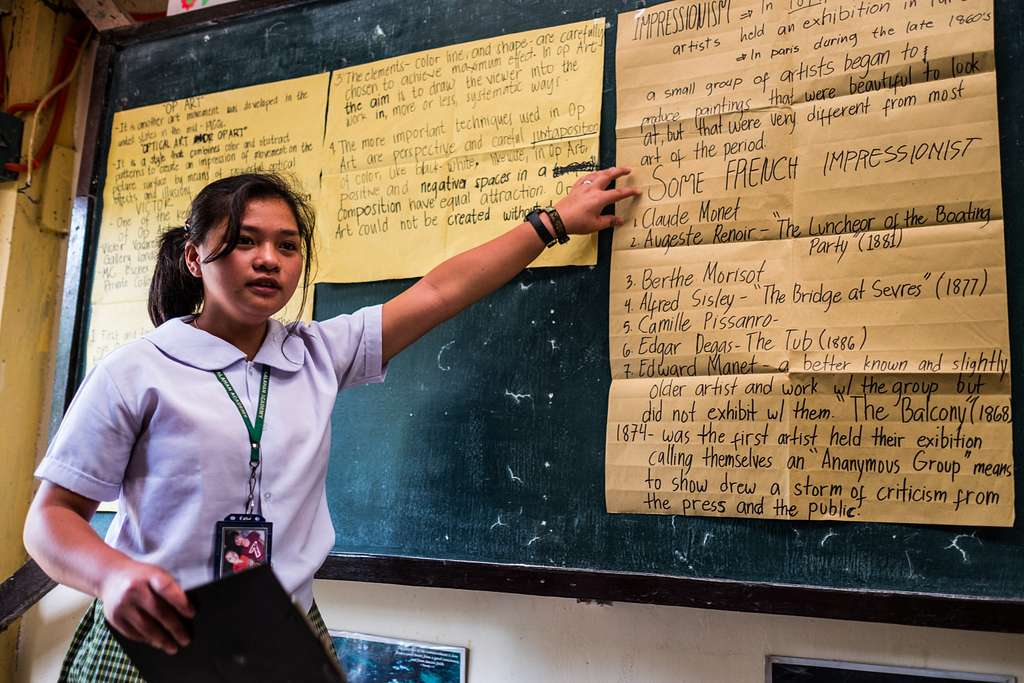 "OP ART"
-It is another art movement was developed in the
united states in the mid-1960s.
"OPTICAL ART OR OP ART"
-It is a style that combines color and abstract
patterns to create an impression of movement on the
picture surface by means of optical
effects and illusion.
- One of the
of Op Ar
Gallery
- MC. Escher
Private
1. First and
3. The elements- color line, and shape- are carefully
chosen to achieve maximum effect. In Op Art-
the aim is to draw the viewer into the
work in, more or less, systematic ways
4. The more important techniques used in Op
Art are perspective and careful juxtaposition
of colors, like black-white. in Op Art,
positive and negative spaces in a
composition have equal attraction. O
Art could not be created with
IMPRESSIONISM ⇒ In
artists held an exhibition in
⇒ In paris during the late 1860's
a small group of artists began to
produce paintings that were beautiful to look
at, but that were very different from most
art of the period.
SOME FRENCH IMPRESSIONIST
1. Claude Monet
2. Augeste Renoir - "The Luncheor of the Boating
Party" (1881)
3. Berthe Morisot
4. Alfred Sisley - "The Bridge at Sevres" (1877)
5. Camille Pissanro-
6. Edgar Degas- The Tub (1886)
7. Edward Manet - a better known and slightly
older artist and work w/ the group but
did not exhibit w/ them. "The Balcony" (1868)
1874- was the first artist held their exibition
calling themselves an "Ananymous Group" means
to show drew a storm of criticism from
the press and the public.